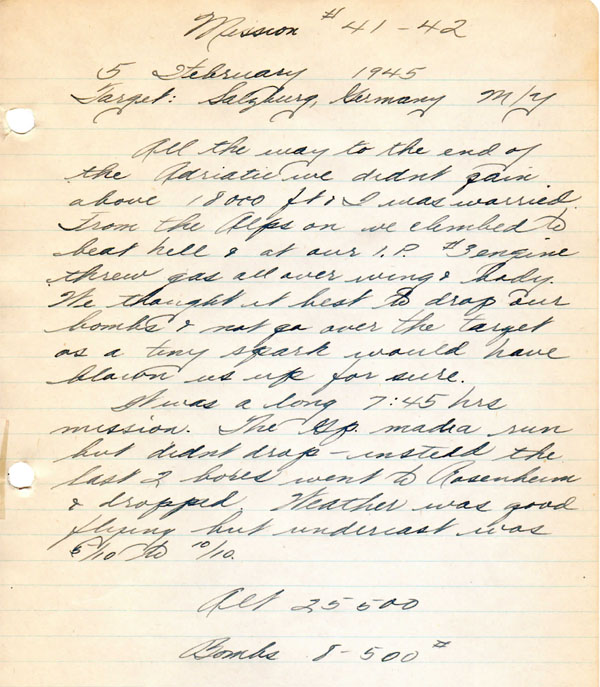 Mission # 41-42
5 February 1945
Target: Salzburg, Germany M/Y
All the way to the end of
the Adriatic we didnt gain
above 18000 ft & I was worried.
From the Alps on we climbed to
beat hell & at our I.P. #3 engine
threw gas all over wing & body.
We thought it best to drop our
bombs & not go over the target
as a tiny spark would have
blown us up for sure.
It was a long 7:45 hrs
mission. The Gp. made a run
but didnt drop - instedd the
last 2 boxes went to Rosenheim
& dropped Weather was good
flying but undercast was
5/10 to 10/10.
Alt 25500
Bombs 8-500#